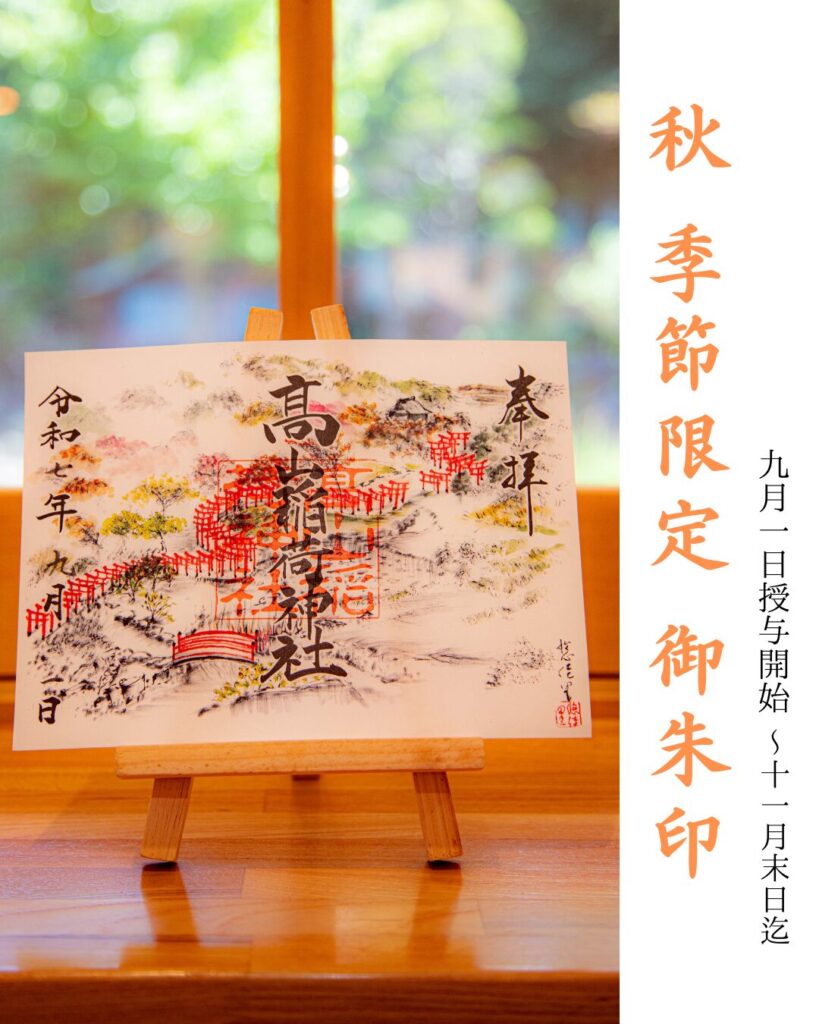 秋 季節限定 御朱印
九月一日授与開始 〜十一月末日迄
奉拝
高山稲荷神社
令和七年 九月 一日